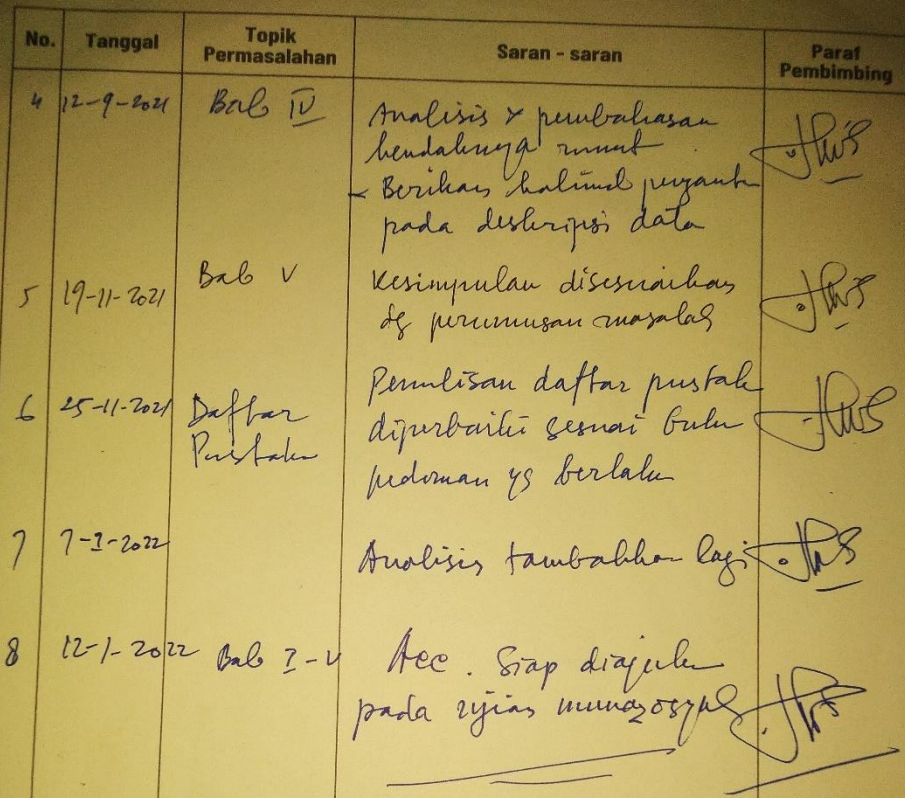 No. Tanggal Topik Permasalahan Saran - saran Paraf Pembimbing
4 12-9-2021 Bab IV Analisis & pembahasan
hendaknya runut
- Berikan kalimat pengantar
pada deskripsi data
5 19-11-2021 Bab V Kesimpulan disesuaikan
dg perumusan masalah
6 25-11-2021 Daftar Pustaka Penulisan daftar pustaka
diperbaiki sesuai buku
pedoman yg berlaku
7 7-I-2022 Analisis tambahkan lagi
8 12-1-2022 Bab I-V Acc. Siap diajukan
pada ujian munaqosyah